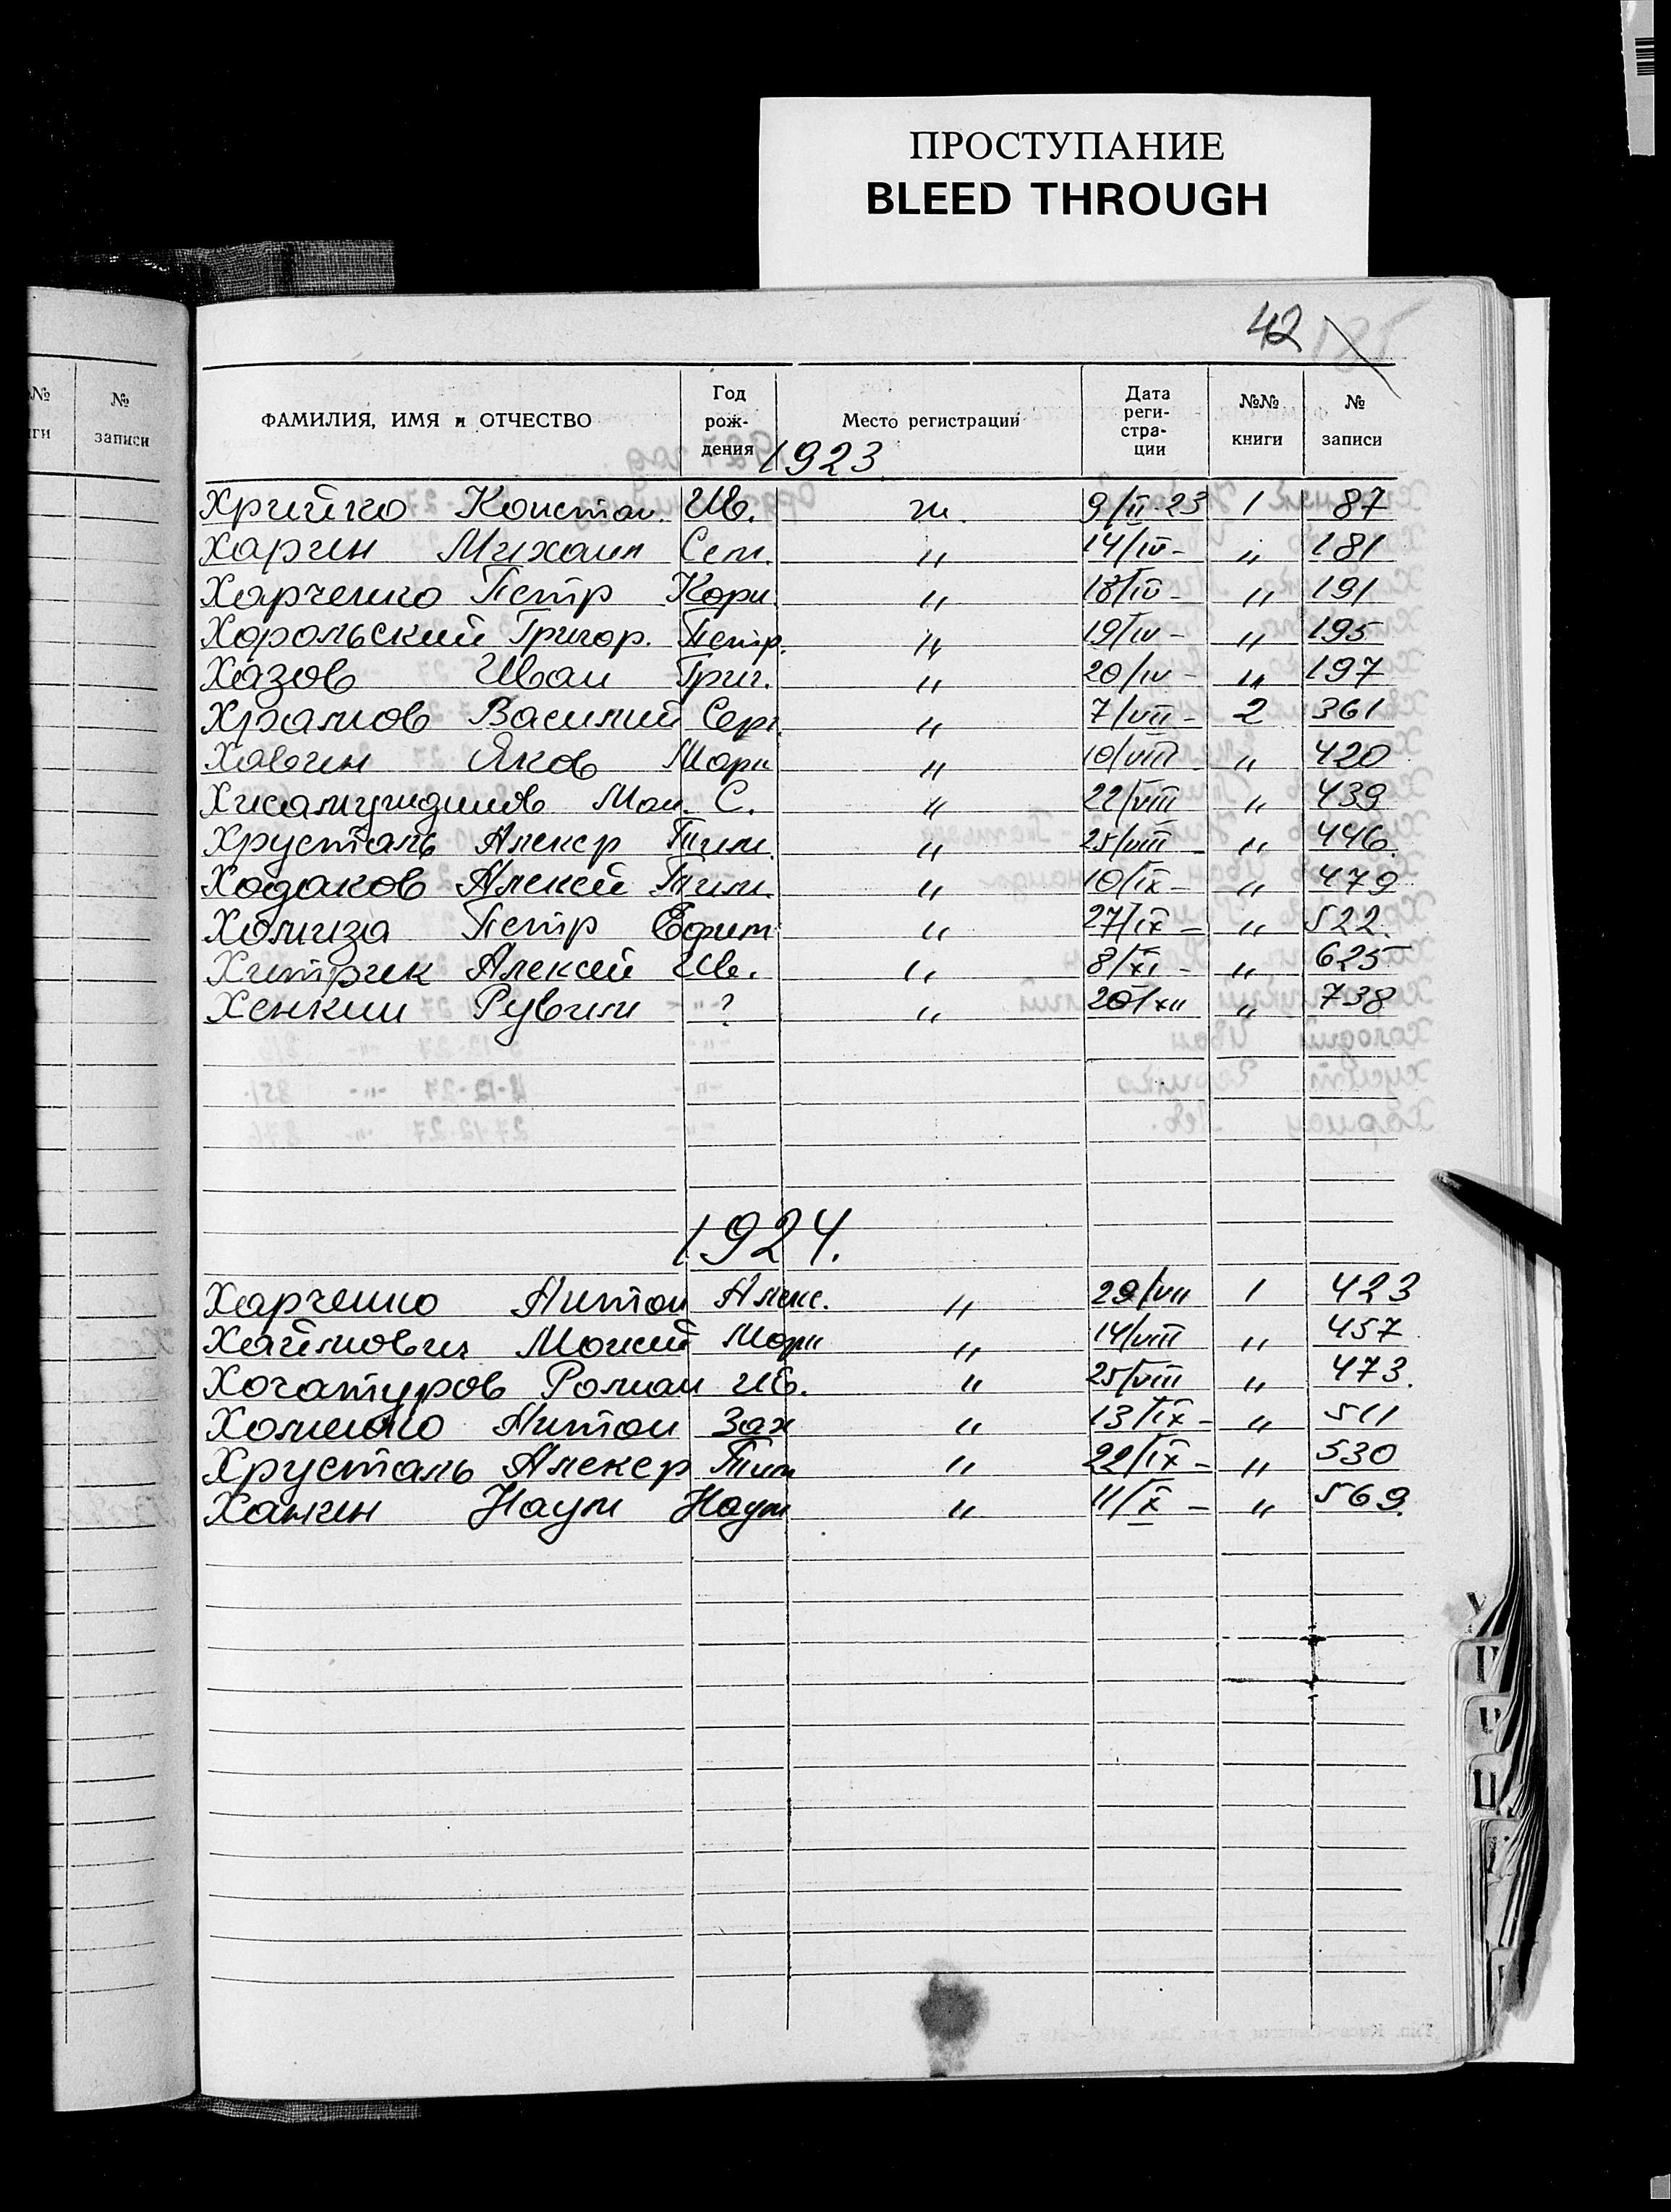 ПРОСТУПАНИЕ
BLEED THROUGH
42
ФАМИЛИЯ, ИМЯ и ОТЧЕСТВО Год рождения Место регистрации Дата реги-стра-ции №№ книги № записи
1923
Хрийко Констан. Ив. ж. 9/II-23 1 87
Харин Михаил Сем. " 14/IV- " 181
Харченко Петр Корн. " 18/IV- " 191
Хорольский Григор. Петр. " 19/IV- " 195
Хазов Иван Григ. " 20/IV- " 197
Храмов Василий Серг. " 7/VII- 2 361
Хавин Яков Марк " 10/VIII " 420
С. " 22/VIII " 439
Хрусталь Алекср Тим. " 25/VIII- " 446.
Ходаков Алексей Тим. " 10/IX- " 479
Хомиза Петр Ефим " 27/IX- " 522.
Хитрик Алексей Ив. " 8/XI- " 625
Хенкин Рувим ? " 20/XII " 738
1924.
Харченко Антон Алекс. " 29/VII 1 423
Хаймович Моисей Марк " 14/VIII " 457
Хочатуров Роман Ив. " 25/VIII " 473.
Хоменко Антон Зах " 13/IX- " 511
Хрусталь Алекср Тим " 22/IX- " 530
Ханин Наум Наум " 11/X- " 569.